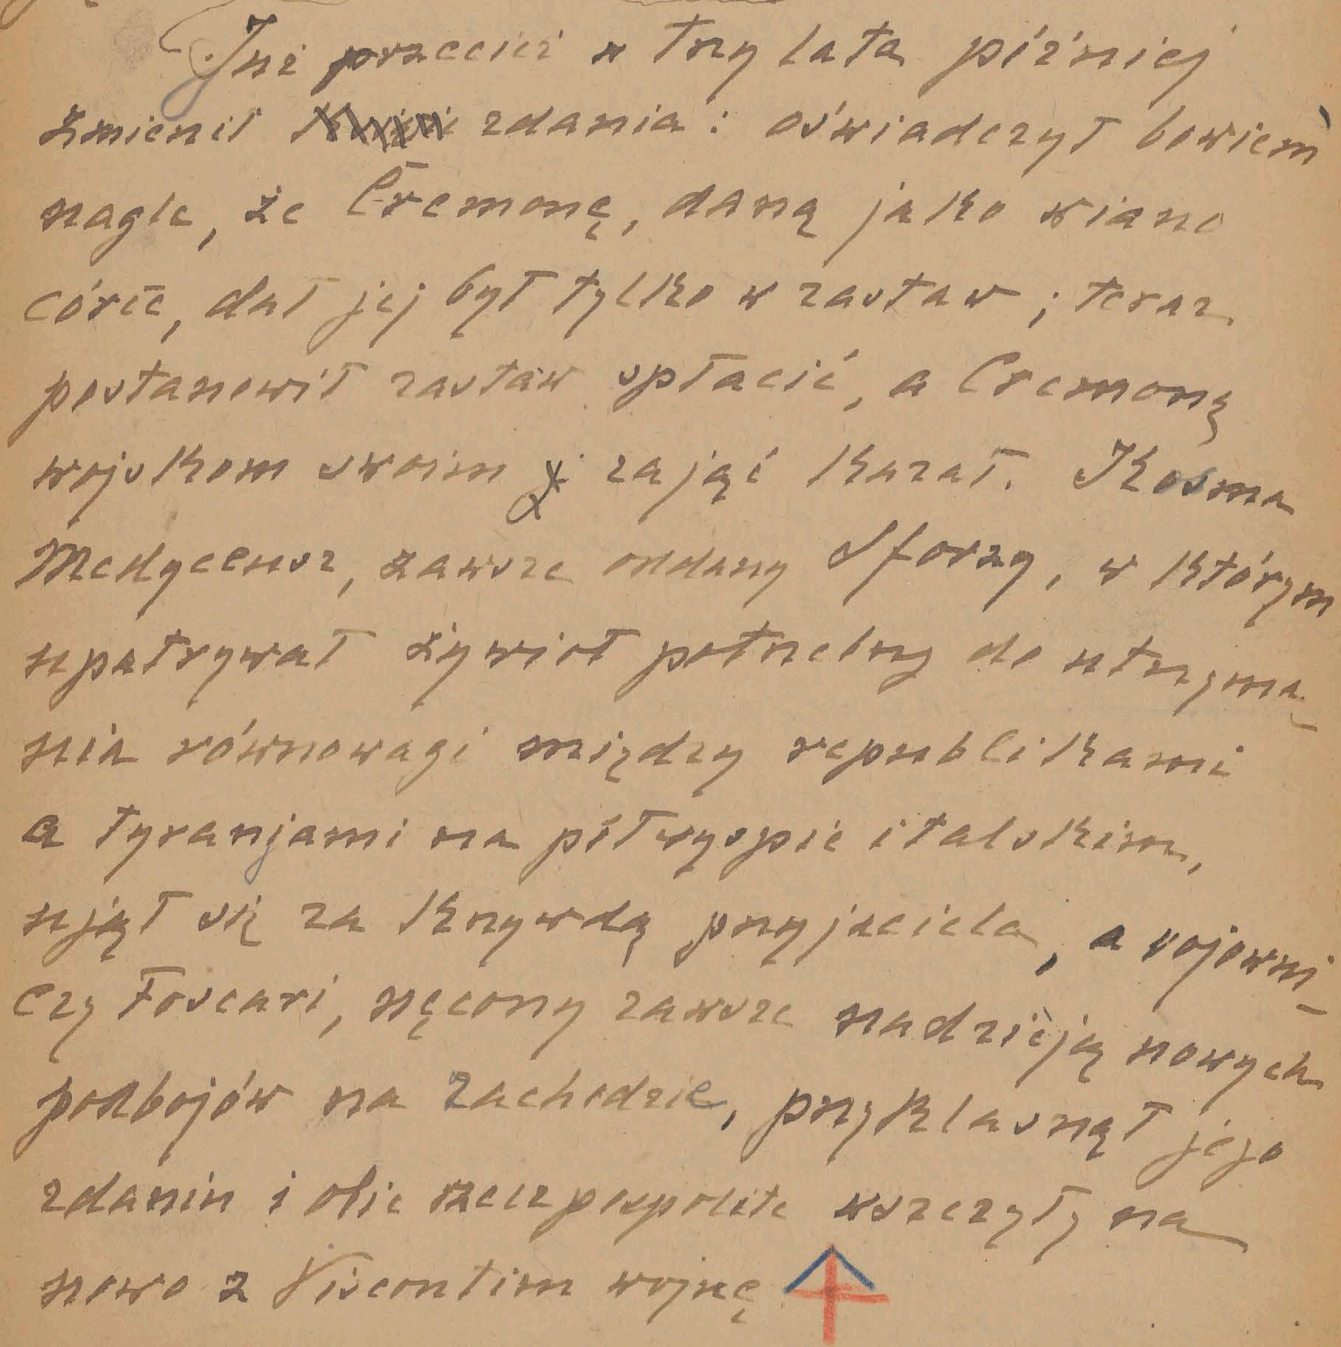 Już przecież w trzy lata później
zmienił zdania: oświadczył bowiem
nagle, że Cremonę, daną jako wiano
córce, dał jej był tylko w zastaw; teraz
postanowił zastaw spłacić, a Cremonę
wojskom swoim zająć kazał. Kosma
Medyceusz, zawsze oddany Sforzy, w którym
upatrywał żywioł potrzebny do utrzyma-
nia równowagi między republikami
a tyranjami na półwyspie italskim,
ujął się za krzywdą przyjaciela, a wojowni-
czy Foscari, nęcony zawsze nadzieją nowych
podbojów na zachodzie, przyklasnął jego
zdaniu i obie rzeczpospolite wszczęły na
nowo z Viscontim wojnę